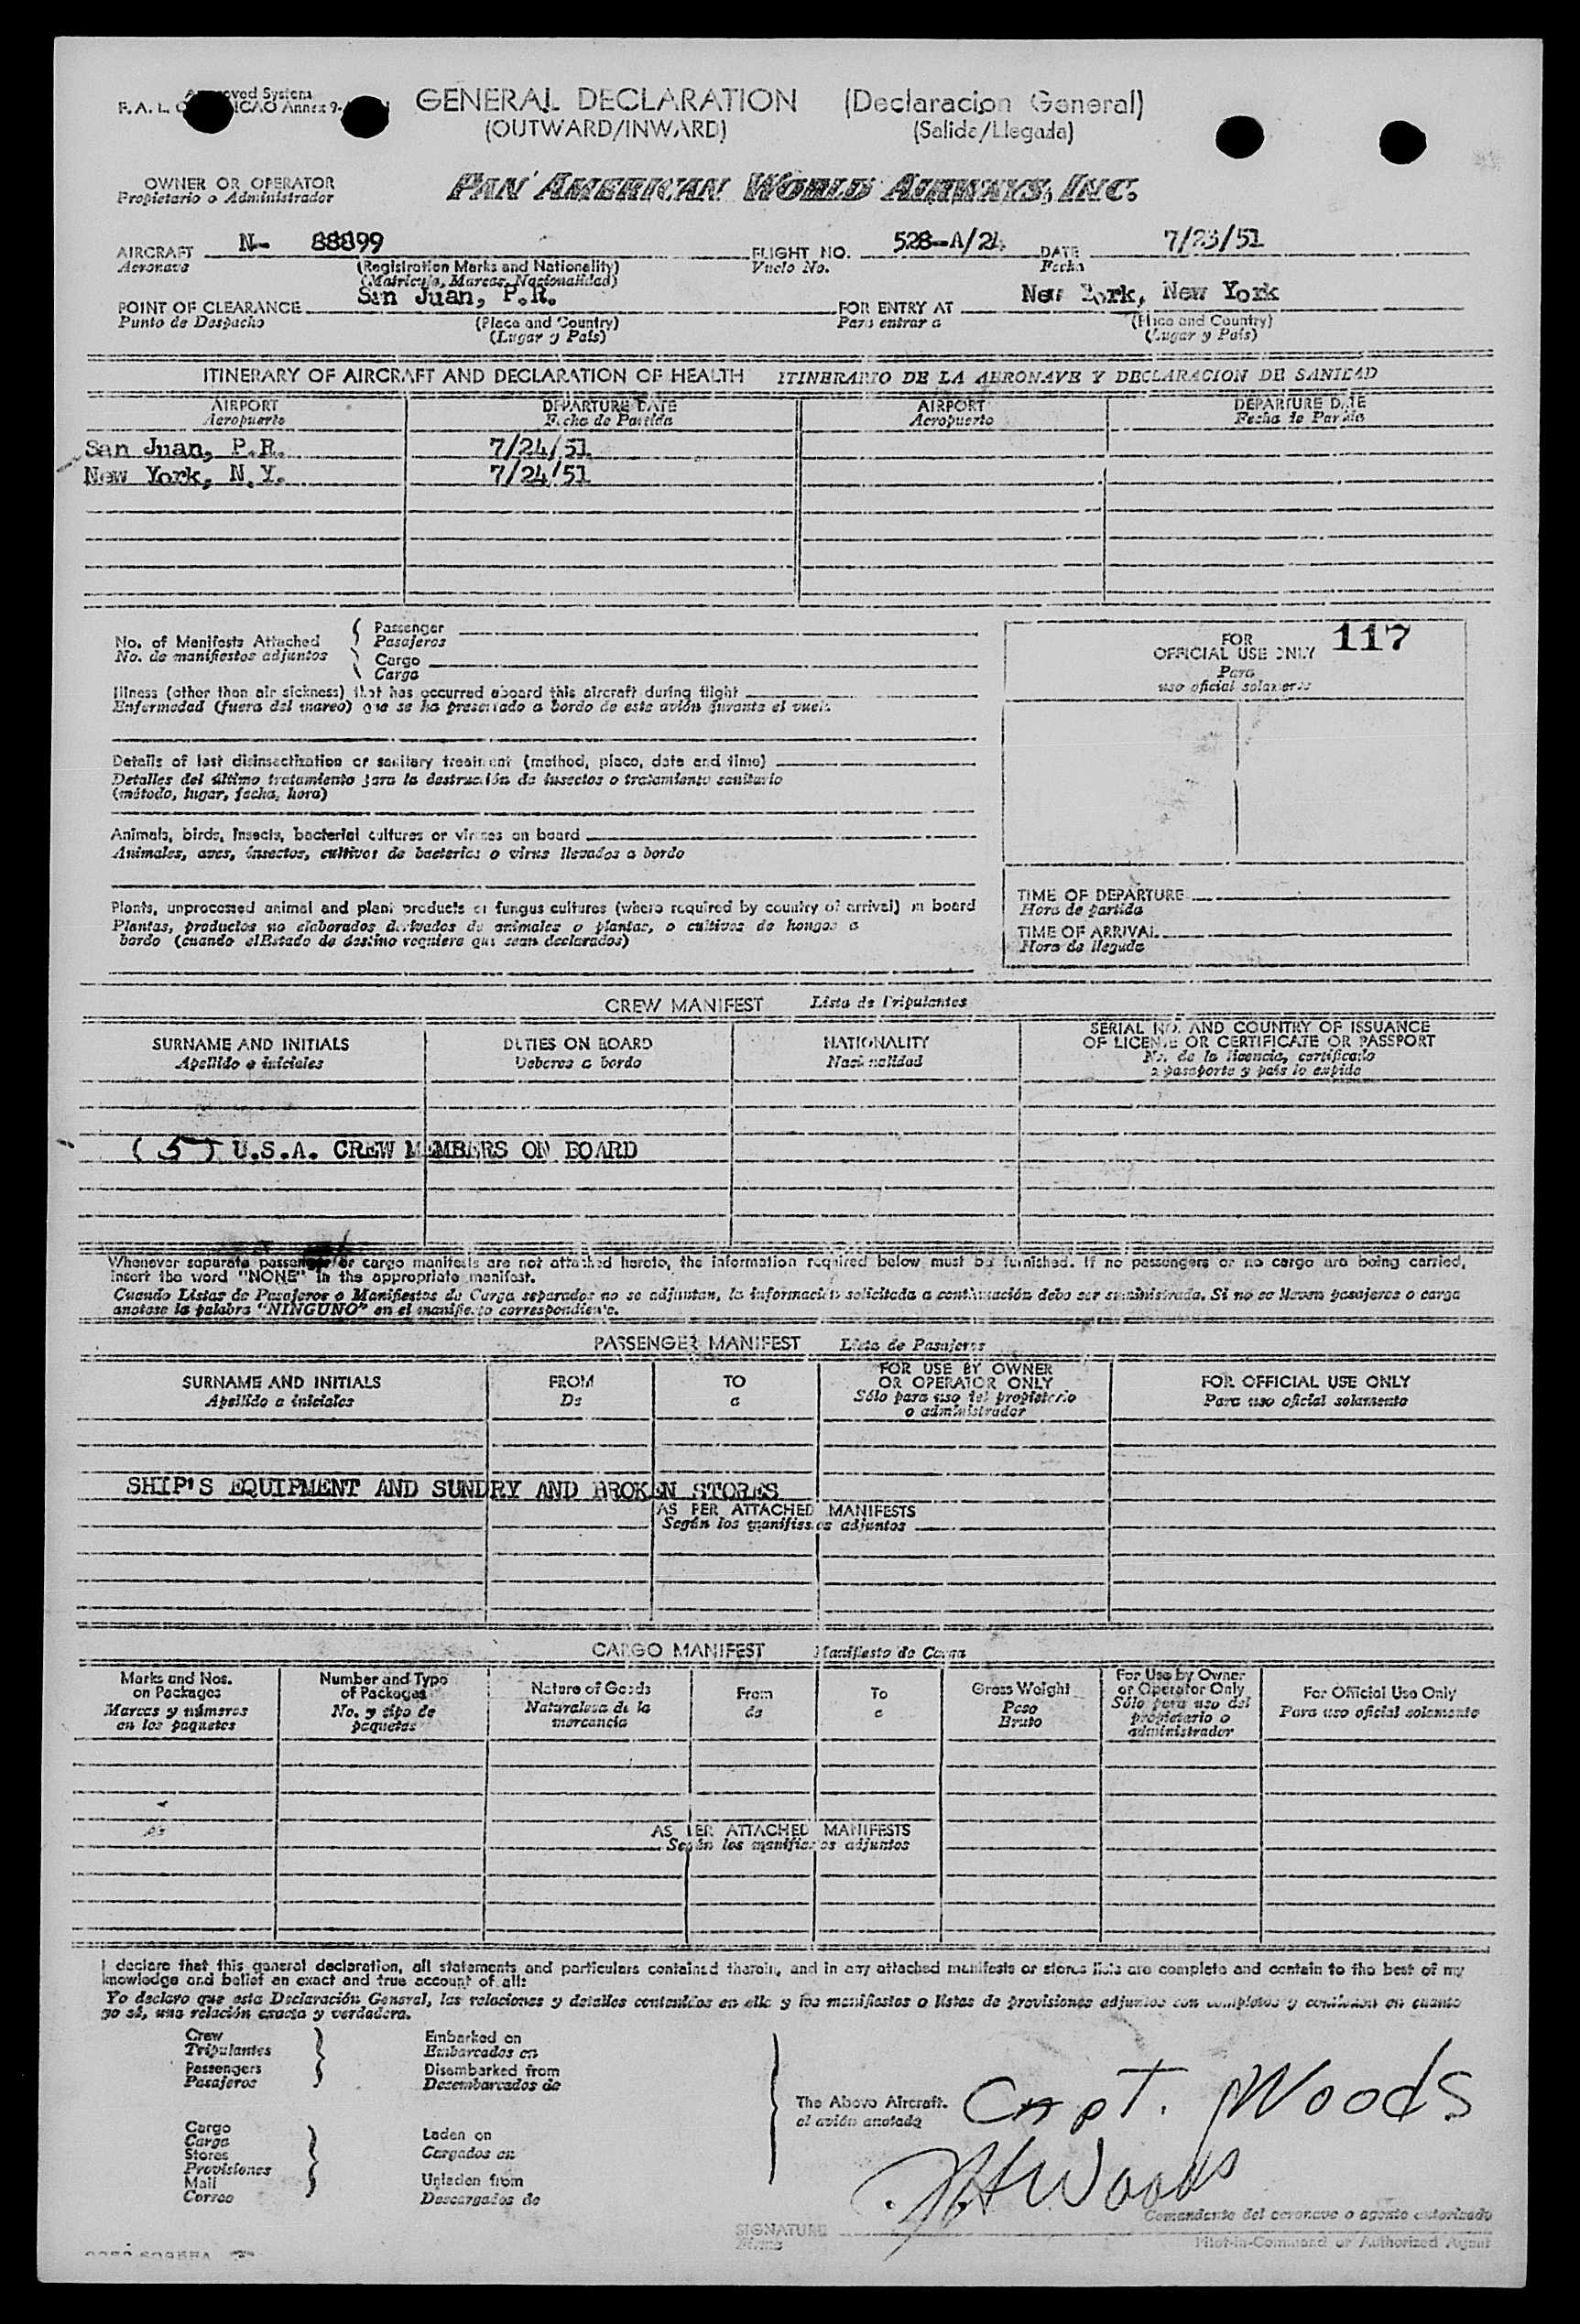 GENERAL DECLARATION (Declaracion General)
(OUTWARD/INWARD) (Salida/Llegada)
OWNER OR OPERATOR
Propietario o Administrador
PAN AMERICAN WORLD AIRWAYS, INC.
AIRCRAFT N- 88899 FLIGHT NO. 528-A/24 DATE 7/23/51
Aeronave (Registration Marks and Nationality) Vuelo No. Fecha
(Matricula, Marcas, Nacionalidad)
POINT OF CLEARANCE San Juan, P.R. FOR ENTRY AT New York, New York
Punto de Despacho (Place and Country) Para entrar a (Place and Country)
(Lugar y País) (Lugar y País)
ITINERARY OF AIRCRAFT AND DECLARATION OF HEALTH ITINERARIO DE LA AERONAVE Y DECLARACION DE SANIDAD
AIRPORT DEPARTURE DATE AIRPORT DEPARTURE DATE
Aeropuerto Fecha de Partida Aeropuerto Fecha de Partida
San Juan, P.R. 7/24/51
New York, N.Y. 7/24/51
No. of Manifests Attached
No. de manifiestos adjuntos
Passenger
Pasajeros
Cargo
Carga
FOR OFFICIAL USE ONLY 117
Para
uso oficial solamente
Illness (other than air sickness) that has occurred aboard this aircraft during flight
Enfermedad (fuera del mareo) que se ha presentado a bordo de este avión durante el vuelo
Details of last disinsectization or sanitary treatment (method, place, date and time)
Detalles del último tratamiento para la destrucción de insectos o tratamiento sanitario
(método, lugar, fecha, hora)
Animals, birds, insects, bacterial cultures or viruses on board
Animales, aves, insectos, cultivos de bacterias o virus llevados a bordo
Plants, unprocessed animal and plant products or fungus cultures (where required by country of arrival) on board
Plantas, productos no elaborados derivados de animales o plantas, o cultivos de hongos a
bordo (cuando elEstado de destino requiera que sean declarados)
TIME OF DEPARTURE
Hora de partida
TIME OF ARRIVAL
Hora de llegada
CREW MANIFEST Lista de Tripulantes
SURNAME AND INITIALS DUTIES ON BOARD NATIONALITY SERIAL NO. AND COUNTRY OF ISSUANCE
OF LICENSE OR CERTIFICATE OR PASSPORT
Apellido e iniciales Deberes a bordo Nacionalidad No. de la licencia, certificado
o pasaporte y país lo expide
(5) U.S.A. CREW MEMBERS ON BOARD
Whenever separate passenger or cargo manifests are not attached hereto, the information required below must be furnished. If no passengers or no cargo are being carried,
insert the word "NONE" in the appropriate manifest.
Cuando Listas de Pasajeros o Manifiestos de Carga separados no se adjuntan, la información solicitada a continuación debe ser suministrada. Si no se llevan pasajeros o carga
anotese la palabra "NINGUNO" en el manifiesto correspondiente.
PASSENGER MANIFEST Lista de Pasajeros
SURNAME AND INITIALS FROM TO FOR USE BY OWNER
OR OPERATOR ONLY FOR OFFICIAL USE ONLY
Apellido e iniciales De a Sólo para uso del propietario
o administrador Para uso oficial solamente
SHIP'S EQUIPMENT AND SUNDRY AND BROKEN STORES
AS PER ATTACHED MANIFESTS
Según los manifiestos adjuntos
CARGO MANIFEST Manifiesto de Carga
Marks and Nos.
on Packages
Marcas y números
en los paquetes
Number and Type
of Packages
No. y tipo de
paquetes
Nature of Goods
Naturaleza de la
mercancia
From
de
To
a
Gross Weight
Peso
Bruto
For Use by Owner
or Operator Only
Sólo para uso del
propietario o
administrador
For Official Use Only
Para uso oficial solamente
AS PER ATTACHED MANIFESTS
Según los manifiestos adjuntos
I declare that this general declaration, all statements and particulars contained therein, and in any attached manifests or stores lists are complete and contain to the best of my
knowledge and belief an exact and true account of all:
Yo declaro que esta Declaración General, las relaciones y detalles contenidos en ella y los manifiestos o listas de provisiones adjuntos son completos y contienen en cuanto
yo sé, una relación exacta y verdadera.
Crew
Tripulantes
Passengers
Pasajeros
Embarked on
Embarcados en
Disembarked from
Desembarcados de
Cargo
Carga
Stores
Provisiones
Mail
Correo
Laden on
Cargados en
Unladen from
Descargados de
The Above Aircraft.
el avión anotado
Capt. Woods
Woods
Comandante del aeronave o agente autorizado
SIGNATURE
Firma
Pilot-in-Command or Authorized Agent